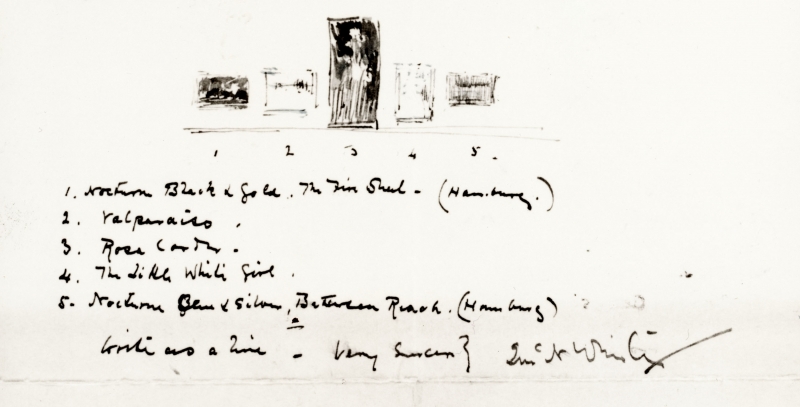 1 2 3 4 5.
1. Nocturne Black & Gold. The Fire Wheel - (Hamburg.)
2. Valparaiso.
3. Rosa Corder -
4. The Little White Girl.
5- Nocturne Blue & Silver, Battersea Reach. (Hamburg)
Write us a line - Very